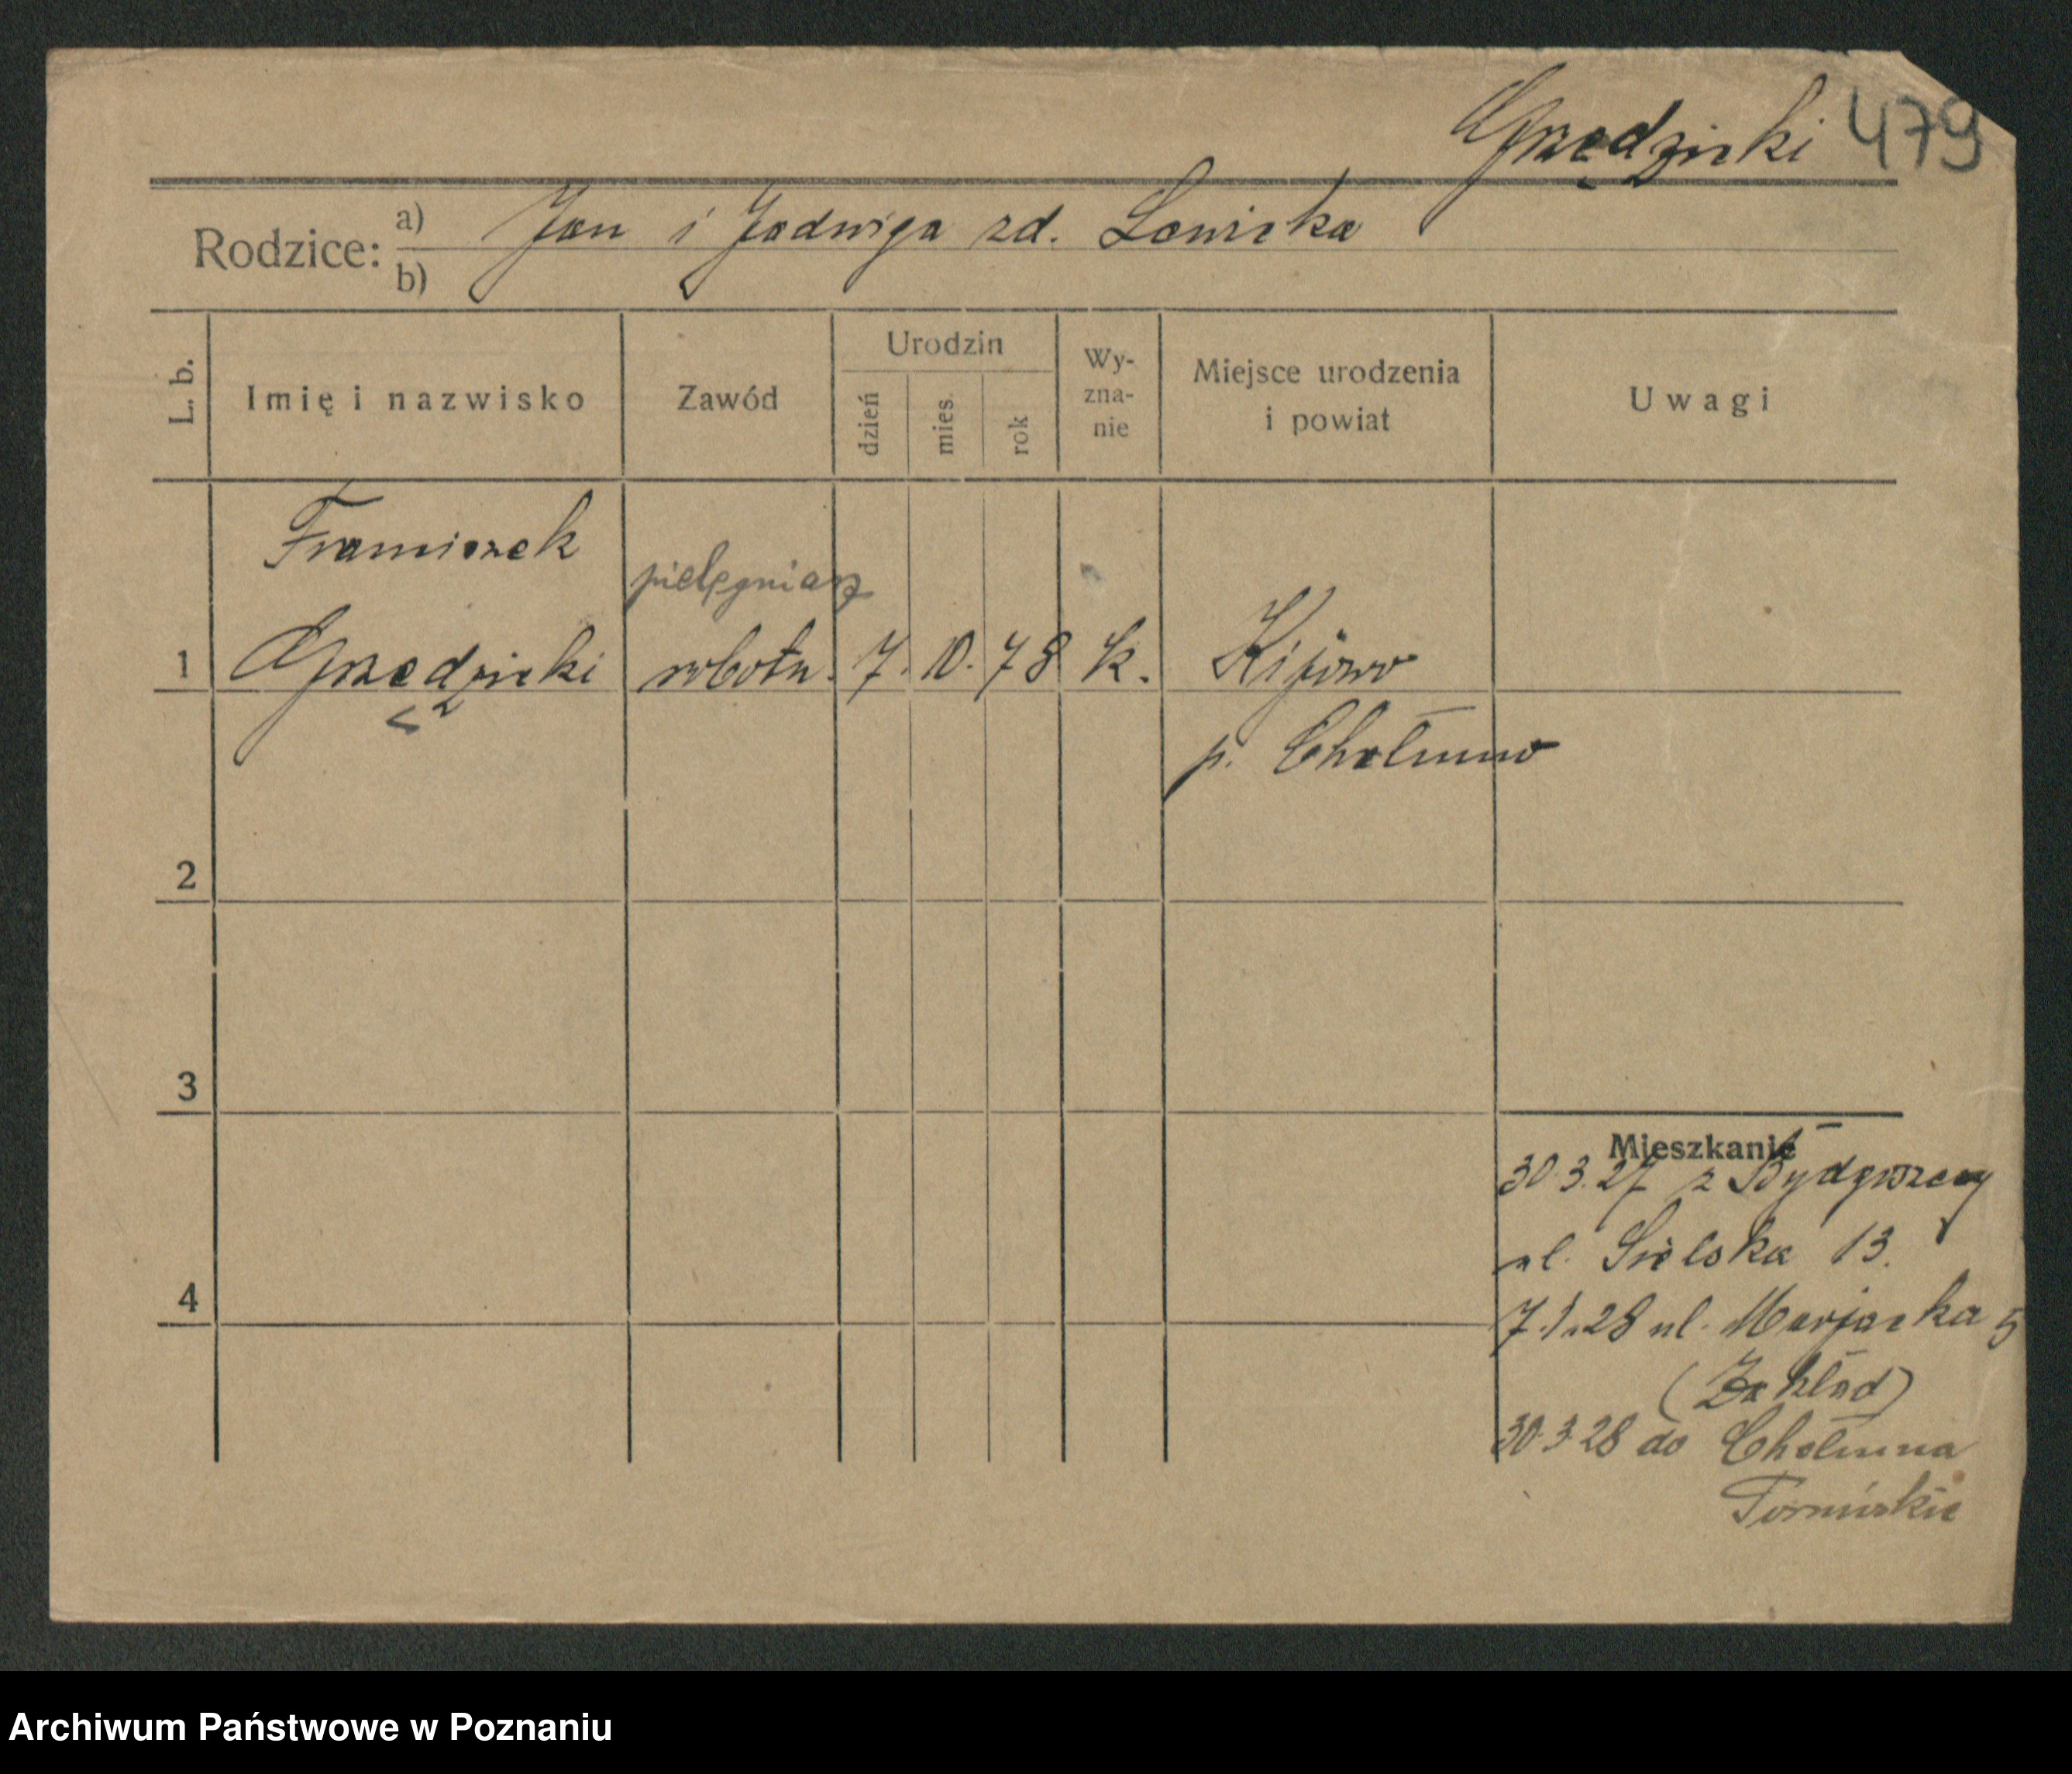 Grzędzicki 479
Rodzice: a) Jan i Jadwiga zd. Lewicka
b)
L. b. Imię i nazwisko Zawód Urodzin dzień mies. rok Wy-zna-nie Miejsce urodzenia i powiat Uwagi
Franciszek
pielęgniarz
1 Grzędzicki robotn. 7. 10. 78 k. Kijewo
p. Chełmno
2
3
Mieszkanie
30.3.27 z Bydgoszczy
ul. Sielska 13.
4
7.1.28 ul. Marjacka 5
(Zakład)
30.3.28 do Chełmna
Archiwum Państwowe w Poznaniu